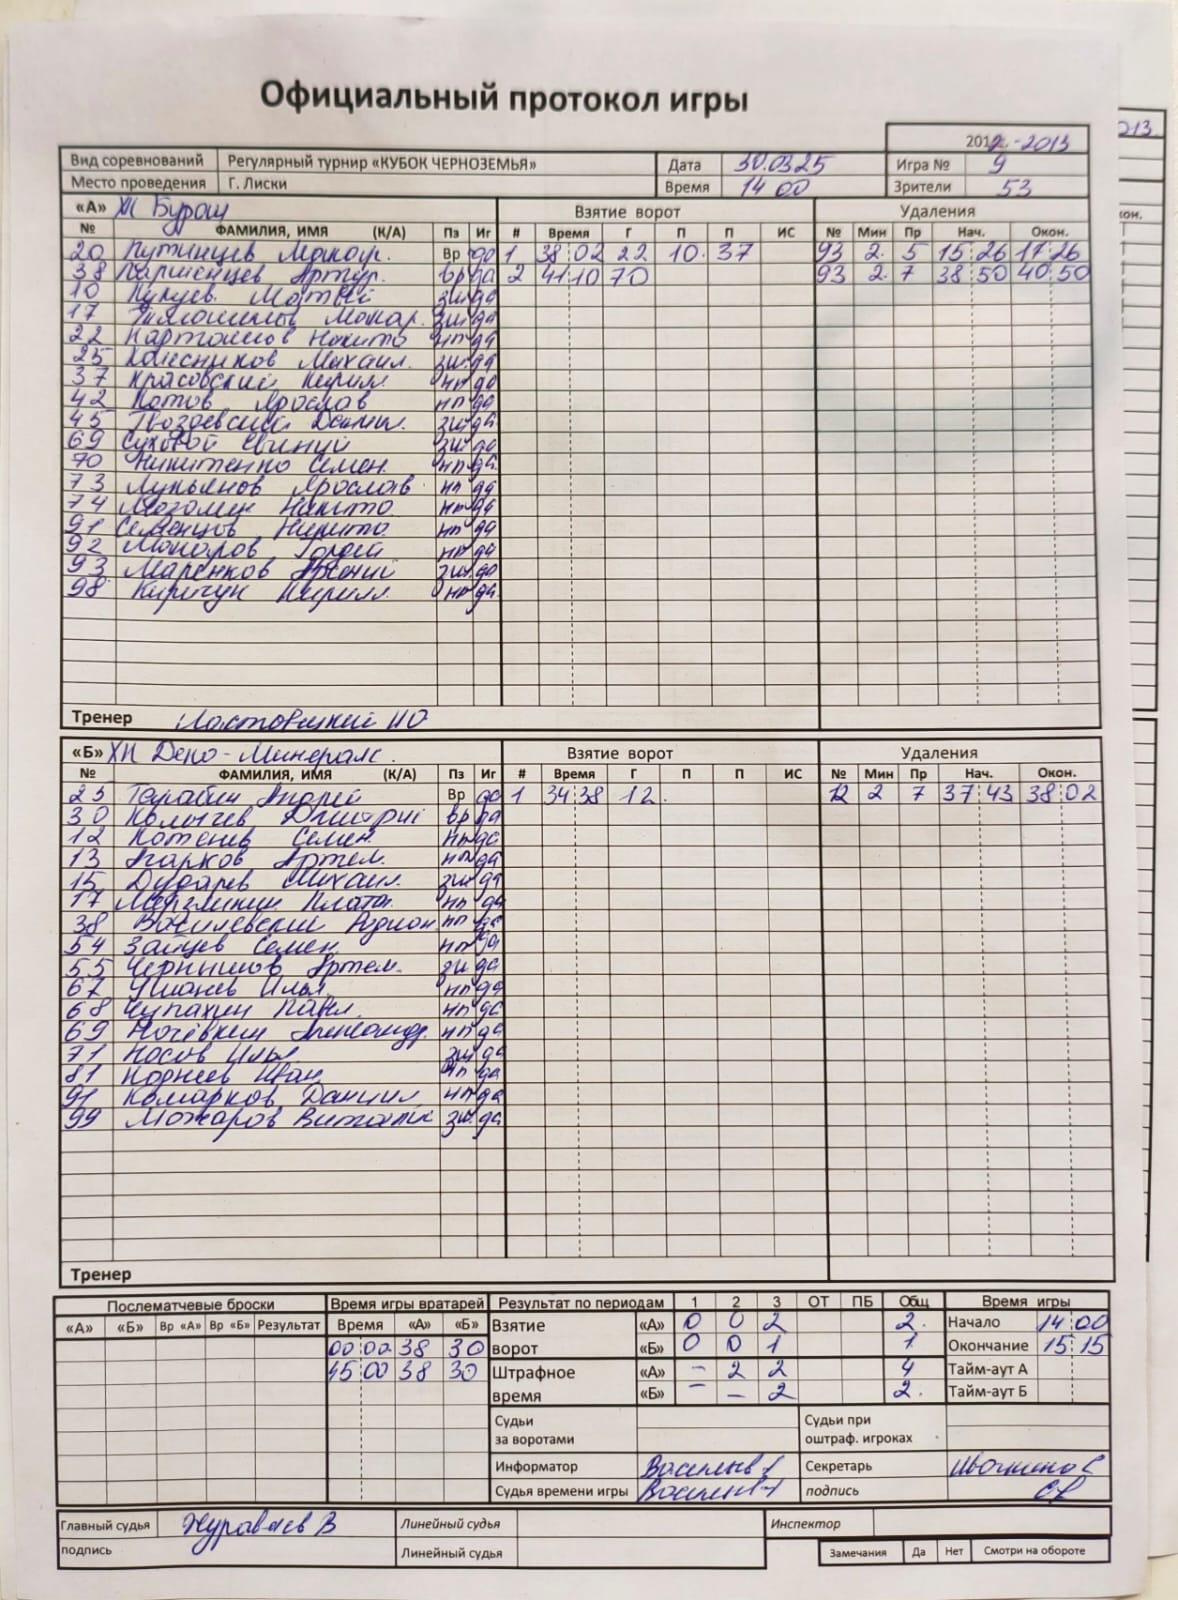 Официальный протокол игры
2012-2013
Вид соревнований Регулярный турнир «КУБОК ЧЕРНОЗЕМЬЯ» Дата 30.03.25 Игра № 9
Место проведения Г. Лиски Время 14 00 Зрители 53
«А» ХК Буран Взятие ворот Удаления
№ ФАМИЛИЯ, ИМЯ (К/А) Пз Иг # Время Г П П ИС № Мин Пр Нач. Окон.
20 Путинцев Макар. Вр да 1 38 02 22 10. 37 93 2. 5 15 26 17 26
38 Паршенцев Артур. вр да 2 41 10 70 93 2. 7 38 50 40 50
10 Матвей зщ да
17 Макар. зщ да
22 Карташов Никита нп да
25 Колесников Михаил. зщ да
37 Красовский Кирилл нп да
42 Котов Ярослав нп да
45 Гвоздевский Даниил. зщ да
69 Суховой Евгений зщ да
70 Никитенко Семен. нп да
73 Лукьянов Ярослав нп да
74 Никита нп да
91 Семенцов Никита. нп да
92 Макаров Гордей нп да
93 Маренков Арсений зщ да
98 Киричук Кирилл нп да
Тренер
«Б» ХК Депо-Минералс. Взятие ворот Удаления
№ ФАМИЛИЯ, ИМЯ (К/А) Пз Иг # Время Г П П ИС № Мин Пр Нач. Окон.
25 Тарабин Андрей Вр да 1 34 38 12. 12 2 7 37 43 38 02
30 Калычев Дмитрий вр да
12 Котенев Семен. нп да
13 Агарков Артем. нп да
15 Дударев Михаил. зщ да
17 Платон нп да
38 Василевский Родион нп да
54 Зайцев Семен нп да
55 Чернышов Артем. зщ да
67 Илья нп да
68 Чупахин Павел. нп да
69 Ночевкин Александр. нп да
71 Носов Илья зщ да
81 Корнеев Иван нп да
91 Комарков Даниил нп да
99 Можаров Виталик зщ. да
Тренер
Послематчевые броски Время игры вратарей Результат по периодам 1 2 3 ОТ ПБ Общ Время игры
«А» «Б» Вр «А» Вр «Б» Результат Время «А» «Б» Взятие «А» 0 0 2 2. Начало 14 00
00 00 38 30 ворот «Б» 0 0 1 1 Окончание 15 15
45 00 38 30 Штрафное «А» – 2 2 4 Тайм-аут А
время «Б» – – 2 2. Тайм-аут Б
Судьи за воротами Судьи при оштраф. игроках
Информатор Васильев Секретарь
Судья времени игры Васильев подпись
Главный судья Журавлев В Линейный судья Инспектор
подпись Линейный судья Замечания Да Нет Смотри на обороте
013
кон.